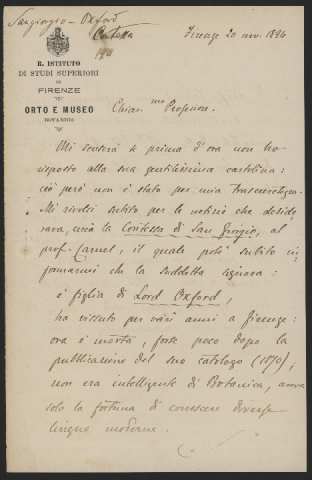 Sangiorgio - Oxford
Contessa
Firenze 20 nov. 1896
R. ISTITUTO
DI STUDI SUPERIORI
IN
FIRENZE
ORTO E MUSEO
BOTANICO
Chiar.mo Professore.
Mi scuserà se prima d'ora non ho
risposto alla sua gentilissima cartolina:
ciò però non è stato per mia trascuratezza.
Mi rivolsi subito per le notizie che deside
rava, circa la Contessa di San Giorgio, al
prof. Caruel, il quale potè subito in
formarmi che la suddetta signora:
è figlia di Lord Oxford,
ha vissuto per vari anni a Firenze:
ora è morta, forse poco dopo la
pubblicazione del suo catalogo (1870);
non era intelligente di Botanica, aveva
solo la fortuna di conoscere diverse
lingue moderne.